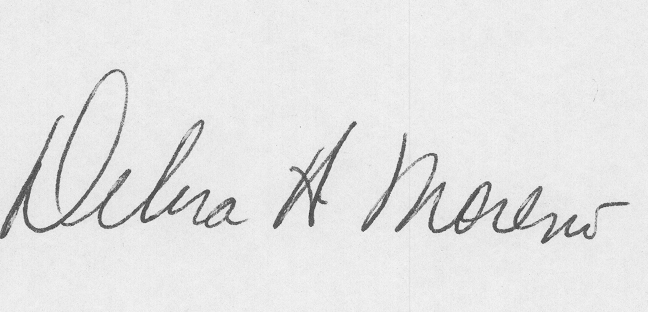 Debra H Moreno